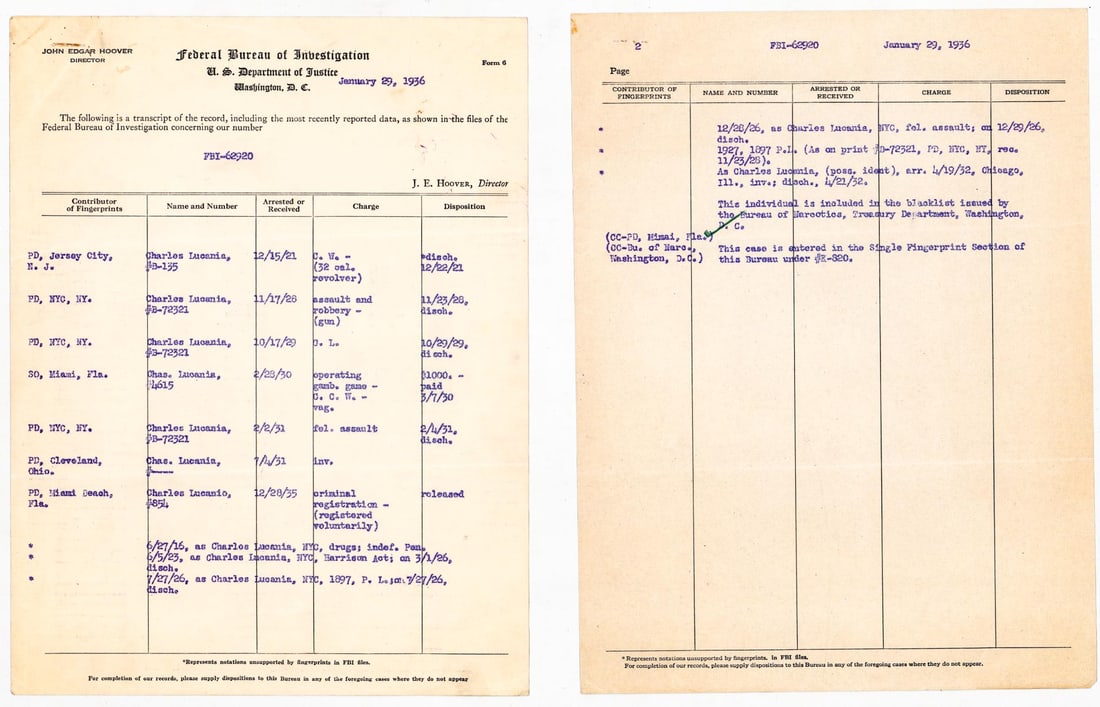 JOHN EDGAR HOOVER
DIRECTOR
Federal Bureau of Investigation
U. S. Department of Justice
Washington, D. C.
Form 6
January 29, 1936
The following is a transcript of the record, including the most recently reported data, as shown in the files of the
Federal Bureau of Investigation concerning our number
FBI-62920
J. E. HOOVER, Director
Contributor of Fingerprints Name and Number Arrested or Received Charge Disposition
PD, Jersey City, Charles Lucania, 12/15/21 C. W. - *disch.
N. J. #B-135 (32 cal. 12/22/21
revolver)
PD, NYC, NY. Charles Lucania, 11/17/28 assault and 11/23/28,
#B-72321 robbery - disch.
(gun)
PD, NYC, NY. Charles Lucania, 10/17/29 G. L. 10/29/29,
#B-72321 disch.
SO, Miami, Fla. Chas. Lucania, 2/28/30 operating $1000. -
#4615 gamb. game - paid
C. C. W. - 3/7/30
vag.
PD, NYC, NY. Charles Lucania, 2/2/31 fel. assault 2/4/31,
#B-72321 disch.
PD, Cleveland, Chas. Lucania, 7/4/31 inv.
Ohio. #----
PD, Miami Beach, Charles Lucanio, 12/28/35 criminal released
Fla. #854 registration -
(registered
voluntarily)
* 6/27/16, as Charles Lucania, NYC, drugs; indef. Pen.
* 6/5/23, as Charles Lucania, NYC, Harrison Act; on 3/1/26,
disch.
* 7/27/26, as Charles Lucania, NYC, 1897, P. L.; on 7/27/26,
disch.
*Represents notations unsupported by fingerprints in FBI files.
For completion of our records, please supply dispositions to this Bureau in any of the foregoing cases where they do not appear
2 FBI-62920 January 29, 1936
Page
CONTRIBUTOR OF FINGERPRINTS NAME AND NUMBER ARRESTED OR RECEIVED CHARGE DISPOSITION
* 12/28/26, as Charles Lucania, NYC, fel. assault; on 12/29/26,
disch.
* 1927, 1897 P.L. (As on print #B-72321, PD, NYC, NY, rec.
11/23/28).
* As Charles Lucania, (poss. ident), arr. 4/19/32, Chicago,
Ill., inv.; disch., 4/21/32.
This individual is included in the blacklist issued by
the Bureau of Narcotics, Treasury Department, Washington,
D. C.
(CC-PD, Mimai, Fla.)
(CC-Bu. of Narc., This case is entered in the Single Fingerprint Section of
Washington, D.C.) this Bureau under #E-820.
*Represents notations unsupported by fingerprints. in FBI files.
For completion of our records, please supply dispositions to this Bureau in any of the foregoing cases where they do not appear.